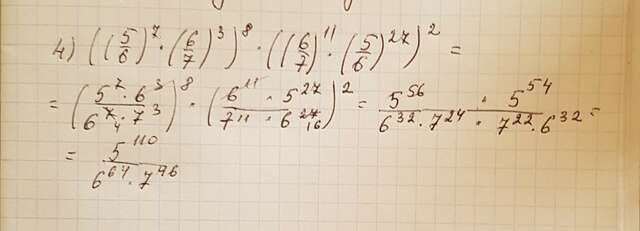 4) ((5/6)^7 · (6/7)^3)^8 · ((6/7)^11 · (5/6)^27)^2 =
= (5^7 · 6^3 / 6^7 4 · 7^3)^8 · (6^11 · 5^27 / 7^11 · 6^27 16)^2 = 5^56 · 5^54 / 6^32 · 7^24 · 7^22 · 6^32 =
= 5^110 / 6^64 · 7^46